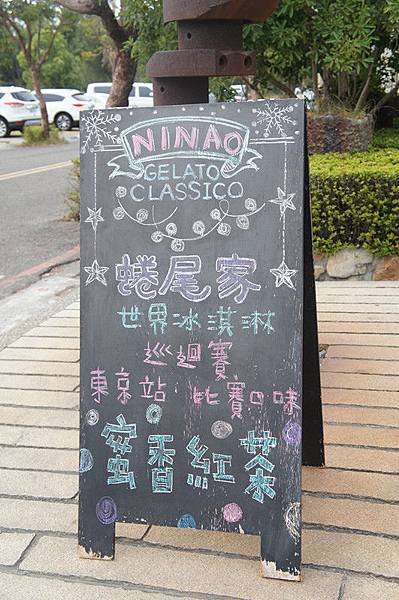 NINAO
GELATO
CLASSICO
蜷尾家
世界冰淇淋
巡迴賽
東京站 比賽の味
蜜香紅茶